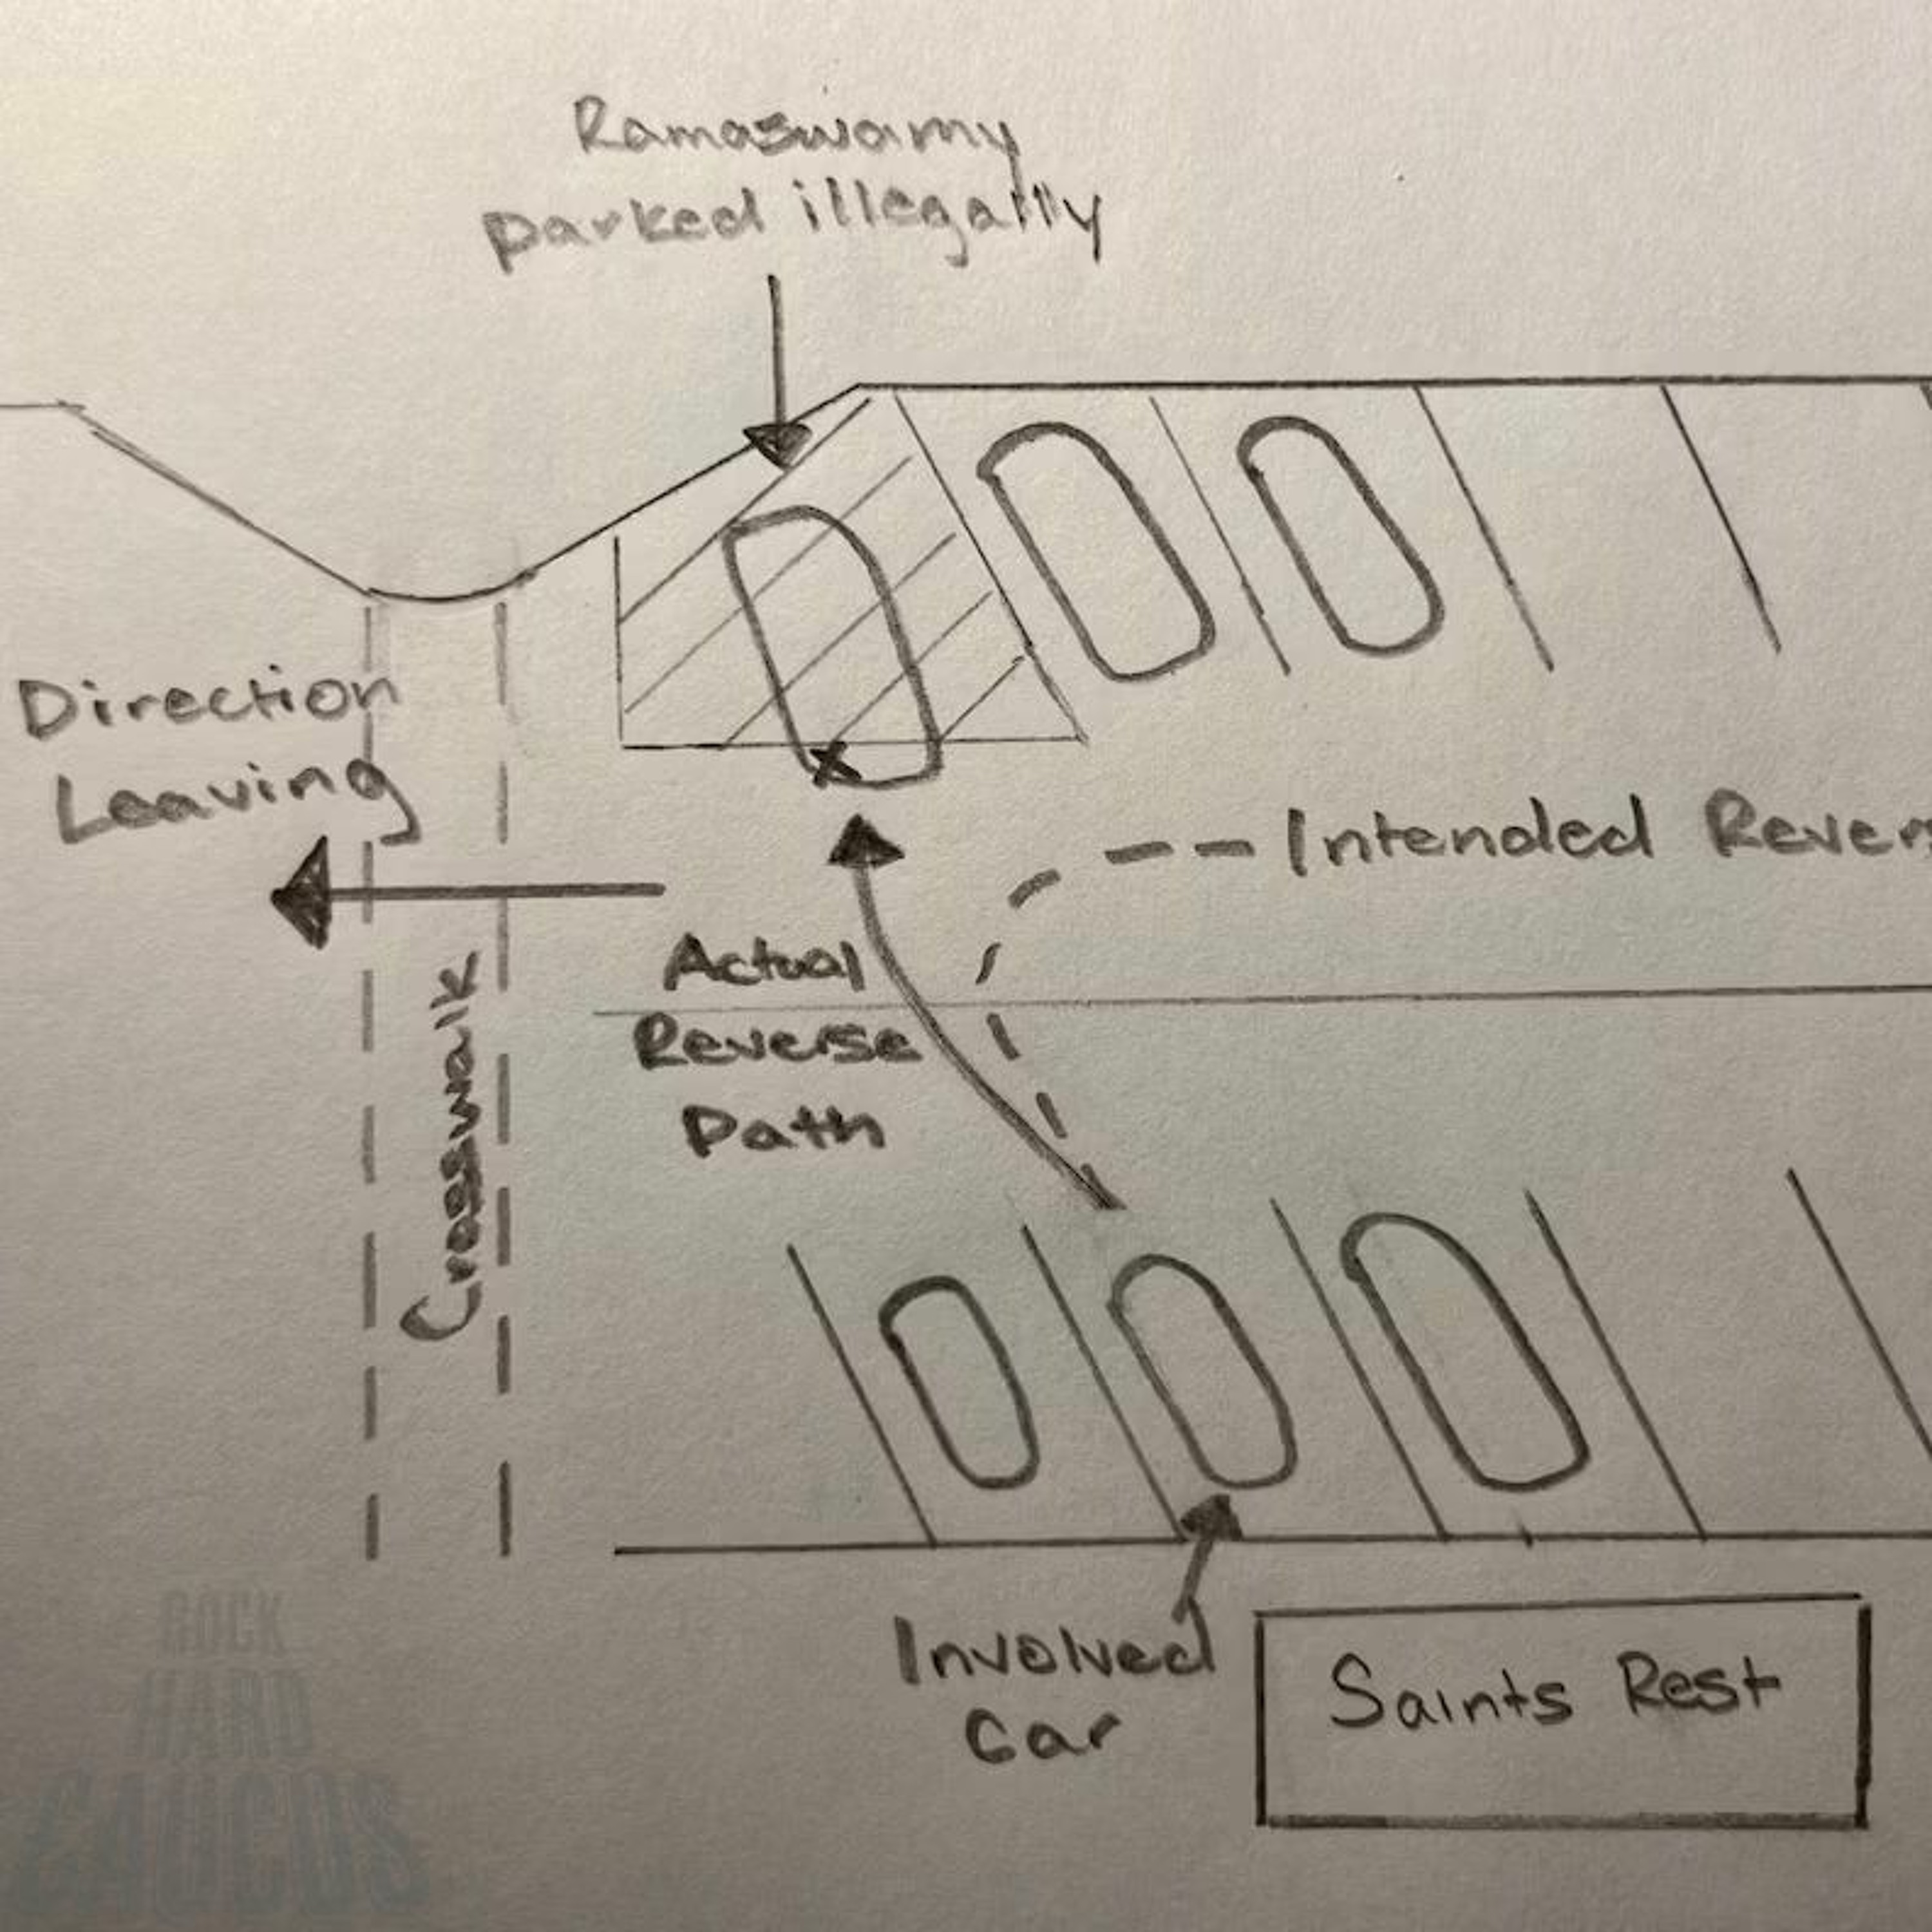 Ramaswamy
parked illegally
Direction
Leaving
Intended Rever
Actual
Reverse
Path
Crosswalk
Involved
Car
Saints Rest
ROCK
HARD
CAUCUS